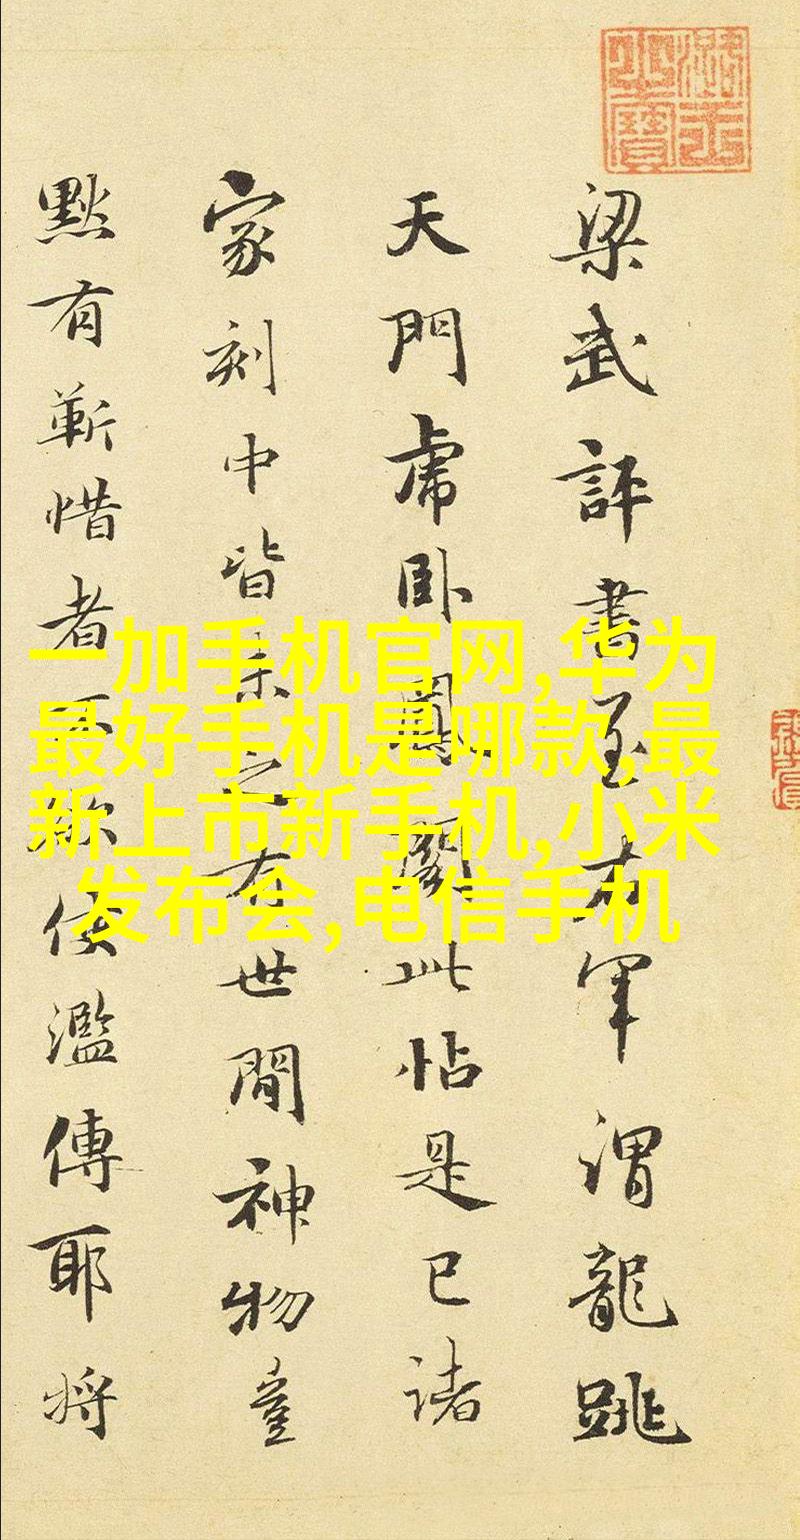 梁武評書至右軍謂龍跳
天門虎卧鳳閣此帖是已諸
家刻中皆未之有世間神物豈
默有靳惜者不欲使濫傳耶將
一加手机官网,华为
最好手机是哪款,最
新上市新手机,小米
发布会,电信手机